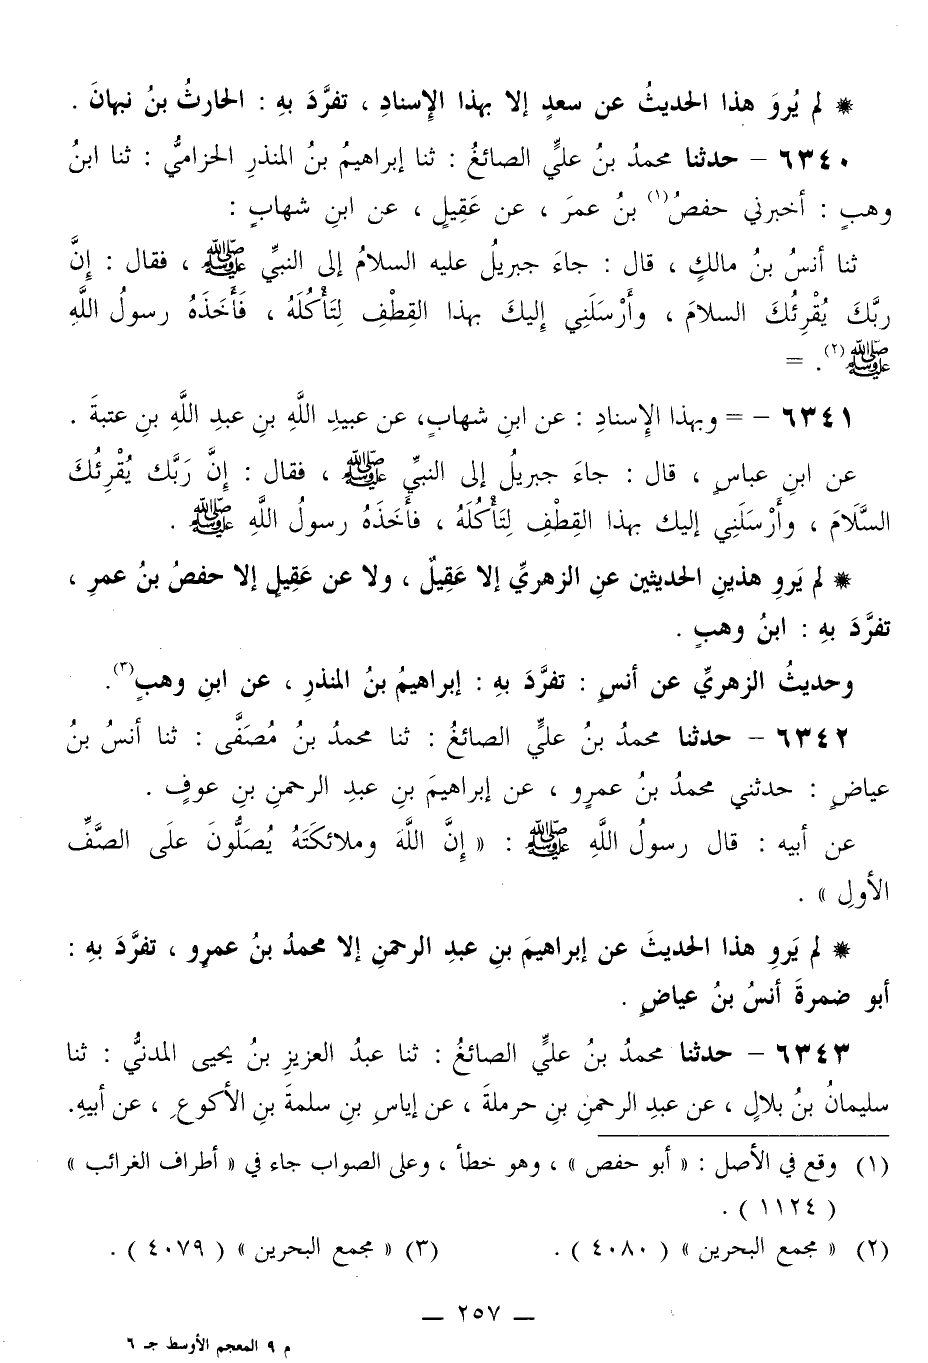 * لم يُروَ هذا الحديثُ عن سعدٍ إلا بهذا الإِسنادِ ، تفرَّدَ بهِ : الحارثُ بنُ نبهانَ .
٦٣٤٠ – حدثنا محمدُ بنُ عليٍّ الصائغُ : ثنا إبراهيمُ بنُ المنذرِ الحزاميُّ : ثنا ابنُ
وهبٍ : أخبرني حفصُ(١) بنُ عمرَ ، عن عَقِيلٍ ، عن ابنِ شهابٍ :
ثنا أنسُ بنُ مالكٍ ، قال : جاءَ جبريلُ عليه السلامُ إلى النبيِّ ﷺ ، فقال : إِنَّ
ربَّكَ يُقْرِئُكَ السلامَ ، وأَرْسَلَنِي إليكَ بهذا القِطْفِ لِتَأْكُلَهُ ، فَأَخَذَهُ رسولُ اللَّهِ
ﷺ(٢) . =
٦٣٤١ – = وبهذا الإِسنادِ : عن ابنِ شهابٍ، عن عبيدِ اللَّهِ بنِ عبدِ اللَّهِ بنِ عتبةَ .
عن ابنِ عباسٍ ، قال : جاءَ جبريلُ إلى النبيِّ ﷺ ، فقال : إِنَّ رَبَّكَ يُقْرِئُكَ
السَّلَامَ ، وأَرْسَلَنِي إليك بهذا القِطْفِ لِتَأْكُلَهُ ، فأَخَذَهُ رسولُ اللَّهِ ﷺ .
* لم يَروِ هذينِ الحديثينِ عنِ الزهريِّ إلا عَقِيلٌ ، ولا عن عَقِيلٍ إلا حفصُ بنُ عمرِ ،
تفرَّدَ بهِ : ابنُ وهبٍ .
وحديثُ الزهريِّ عن أنسٍ : تفرَّدَ بهِ : إبراهيمُ بنُ المنذرِ ، عن ابنِ وهبٍ(٣).
٦٣٤٢ – حدثنا محمدُ بنُ عليٍّ الصائغُ : ثنا محمدُ بنُ مُصَفَّى : ثنا أنسُ بنُ
عياضٍ : حدثني محمدُ بنُ عمرٍو ، عن إبراهيمَ بنِ عبدِ الرحمنِ بنِ عوفٍ .
عن أبيه : قال رسولُ اللَّهِ ﷺ : « إِنَّ اللَّهَ وملائكَتَهُ يُصَلُّونَ علَى الصَّفِّ
الأولِ » .
* لم يَروِ هذا الحديثَ عن إبراهيمَ بنِ عبدِ الرحمنِ إلا محمدُ بنُ عمرٍو ، تفرَّدَ بهِ :
أبو ضمرةَ أنسُ بنُ عياضٍ .
٦٣٤٣ – حدثنا محمدُ بنُ عليٍّ الصائغُ : ثنا عبدُ العزيزِ بنُ يحيى المدنيُّ : ثنا
سليمانُ بنُ بلالٍ ، عن عبدِ الرحمنِ بنِ حرملةَ ، عن إياسِ بنِ سلمةَ بنِ الأكوعِ ، عن أبيهِ.
(١) وقع في الأصل : « أبو حفص » ، وهو خطأ ، وعلى الصواب جاء في « أطراف الغرائب »
( ١١٢٤ ) .
(٢) « مجمع البحرين » ( ٤٠٨٠ ) . (٣) « مجمع البحرين » ( ٤٠٧٩ ) .
— ٢٥٧ —
م ٩ المعجم الأوسط جـ ٦